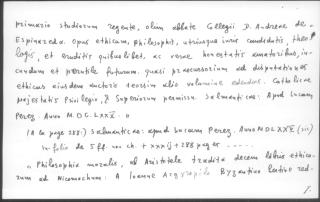 primario studiorum regente, olim abbate Collegii D. Andreae de
Espinareda. Opus ethicum, philosophis, utriusque iuris candidatis, theo-
logis, et eruditis quibuslibet, ac verae honestatis amatoribus, iu-
cundum et perutile futurum. quasi praecursorium ad disputationes
ethicas eiusdem auctoris seorsim alio volumine edendas. Catholicae
majestatis Privilegio, & Superiorum permissu. Salmanticae: Apud Lucam
Perez. Anno M.DC.LXXV. "
(A la page 288:) Salmanticae: apud Lucam Perez. Anno MDLXXV (sic)
in-folio de 5 ff. non ch. + XXXIJ + 288 pages ....
" Philosophia moralis, ab Aristotele tradita decem libris ethico-
rum ad Nicomachum: A Ioanne Argyropilo Byzantino latine red-